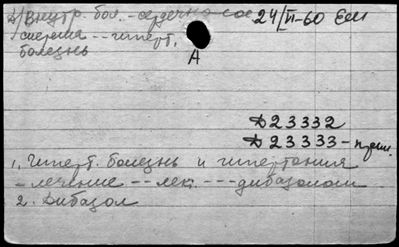 Д/Внутр. бол. - сердечно сос 24/VI-60 Еш
система -- гиперт.
болезнь
А
Д23332
Д23333 -
1. Гиперт. болезнь и гипертония
- лечение -- лек. --- дибазолом
2. Дибазол